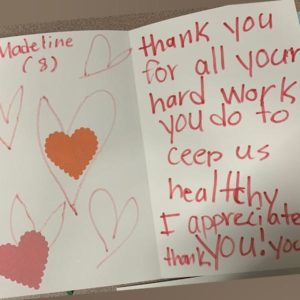 Madeline
(8)
thank you
for all your
hard work
you do to
ceep us
healthy
I appreciate
thank YOU! you